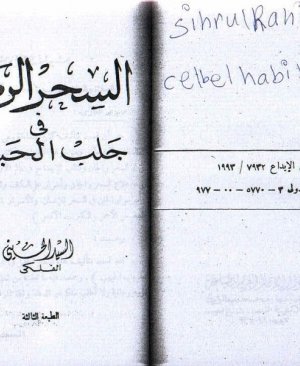 السحر
في
جلب
السيد الحسيني
الفلكي
الطبعة الثالثة
sihrulRah
celbel habi
الإيداع ٧٩٣٢ / ١٩٩٣
٣ — ٥٧٧٠ — ٠٠ — ٩٧٧